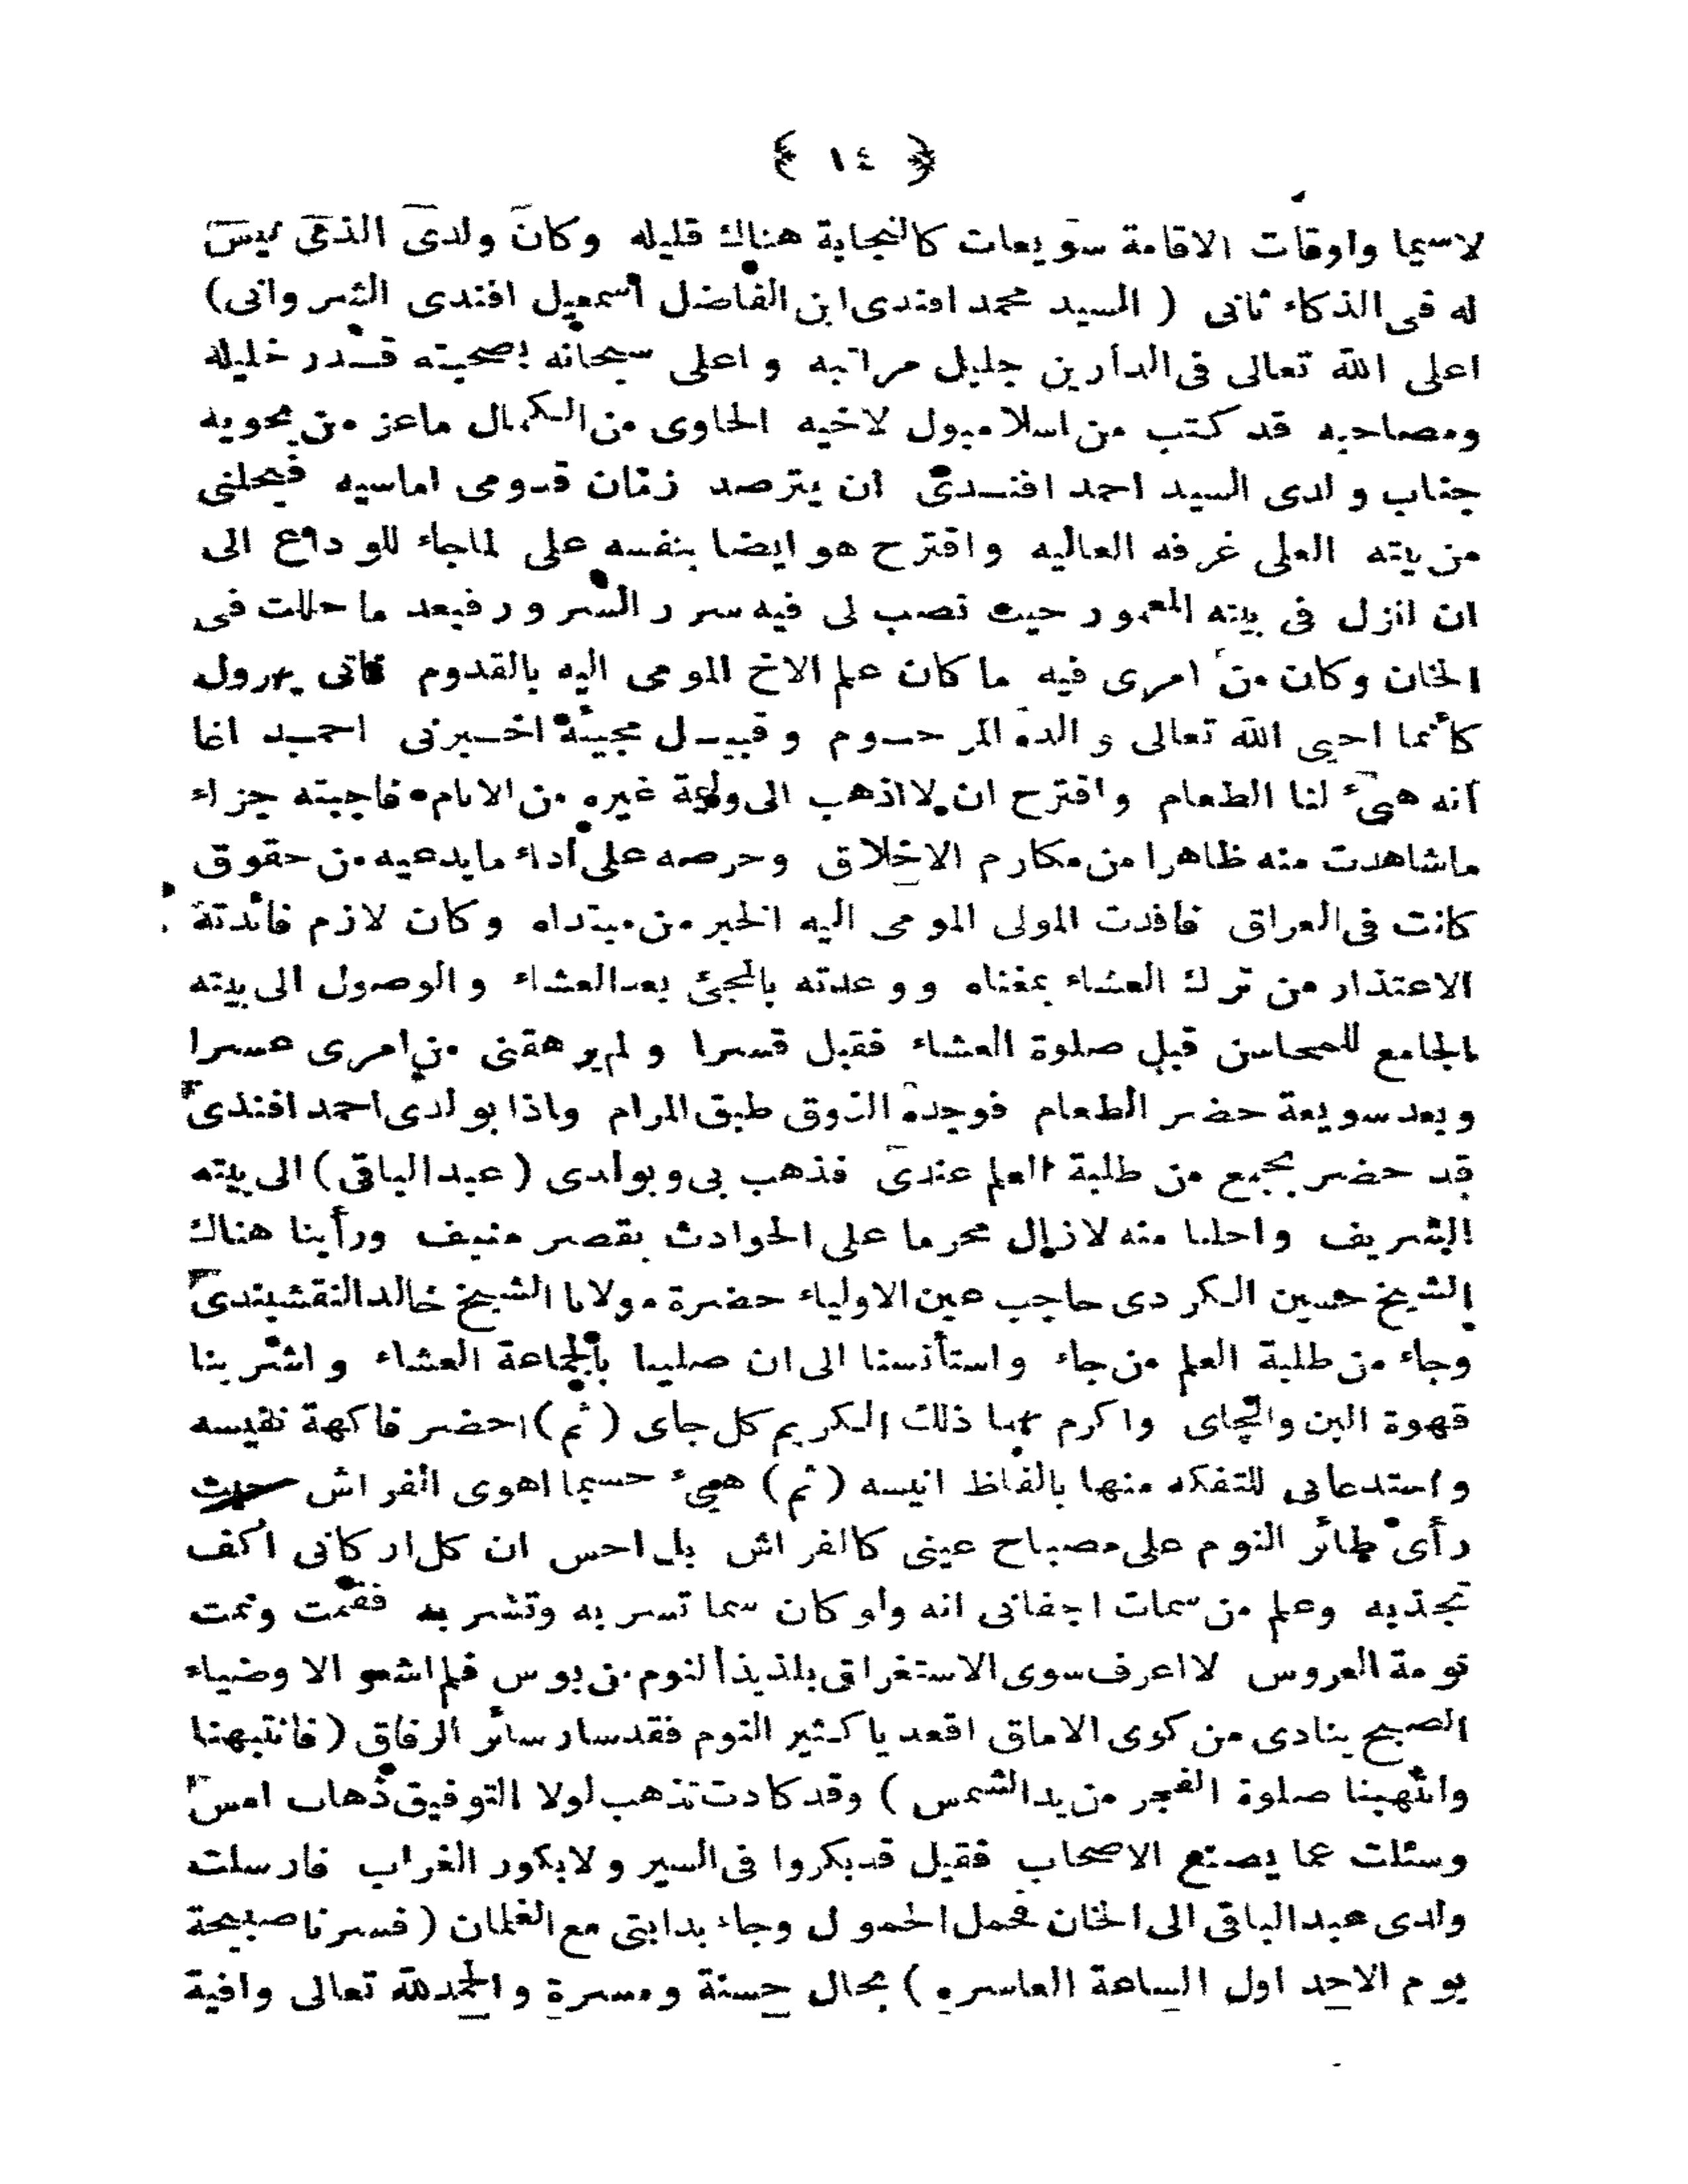 ﴿ ١٤ ﴾
لاسيما واوقات الاقامة سويعات كالنجابة هناك قليله وكان ولدى الذى ليس
له فى الذكاء ثانى ( السيد محمد افندى ابن الفاضل اسمعيل افندى الشروانى)
اعلى الله تعالى فى الدارين جليل مراتبه واعلى سبحانه بصحبته قدر خليله
ومصاحبه قد كتب من اسلامبول لاخيه الحاوى من الكمال ماعز من يحويه
جناب ولدى السيد احمد افندى ان يترصد زمان قدومى اماسيه فيحلنى
من بيته العلى غرفه العاليه واقترح هو ايضا بنفسه على لماجاء للوداع الى
ان انزل فى بيته المعمور حيث نصب لى فيه سرر السرور فبعد ما حللت فى
الخان وكان من امرى فيه ما كان علم الاخ المومى اليه بالقدوم فاتى يهرول
كأنما احيى الله تعالى والده المرحوم وقبيل مجيئه اخبرنى احميد اغا
انه هيئ لنا الطعام واقترح ان لااذهب الى وليمة غيره من الانام فاجبته جزاء
ماشاهدت منه ظاهرا من مكارم الاخلاق وحرصه على أداء مايدعيه من حقوق
كانت فى العراق فافدت المولى المومى اليه الخبر من مبتداه وكان لازم فائدته
الاعتذار من ترك العشاء بمغناه ووعدته بالمجئ بعد العشاء والوصول الى بيته
الجامع للمحاسن قبل صلوة العشاء فقبل قسرا ولم يرهقنى من امرى عسرا
وبعد سويعة حضر الطعام فوجده الذوق طبق المرام واذا بولدى احمد افندى
قد حضر بجمع من طلبة العلم عندى فذهب بى وبولدى (عبد الباقى) الى بيته
الشريف واحلنا منه لازال محرما على الحوادث بقصر منيف ورأينا هناك
الشيخ حسين الكردى حاجب عين الاولياء حضرة مولانا الشيخ خالد النقشبندى
وجاء من طلبة العلم من جاء واستأنسنا الى ان صلينا بالجماعة العشاء واشربنا
قهوة البن والچاى واكرم بهما ذلك الكريم كل جاى (ثم) احضر فاكهة نفيسه
واستدعانى للتفكه منها بالفاظ انيسه (ثم) هيئ حسيما اهوى الفراش حيث
رأى طائر النوم على مصباح عينى كالفراش بل احس ان كل اركانى اكف
تجذبه وعلم من سمات اجفانى انه ولو كان سما تسر به وتشربه فقمت ونمت
نومة العروس لااعرف سوى الاستغراق بلذيذ النوم من بوس فلم اشعر الا وضياء
الصبح ينادى من كوى الاماق اقعد يا كثير النوم فقد سار سائر الرفاق (فانتبهنا
وانتهبنا صلوة الفجر من يد الشمس ) وقد كادت تذهب لولا التوفيق ذهاب امس
وسئلت عما يصنع الاصحاب فقيل قد بكروا فى السير ولابكور الغراب فارسلت
ولدى عبد الباقى الى الخان فحمل الحمول وجاء بدابتى مع الغلمان (فسرنا صبيحة
يوم الاحد اول الساعة العاشره ) بحال حسنة ومسرة والحمد لله تعالى وافية